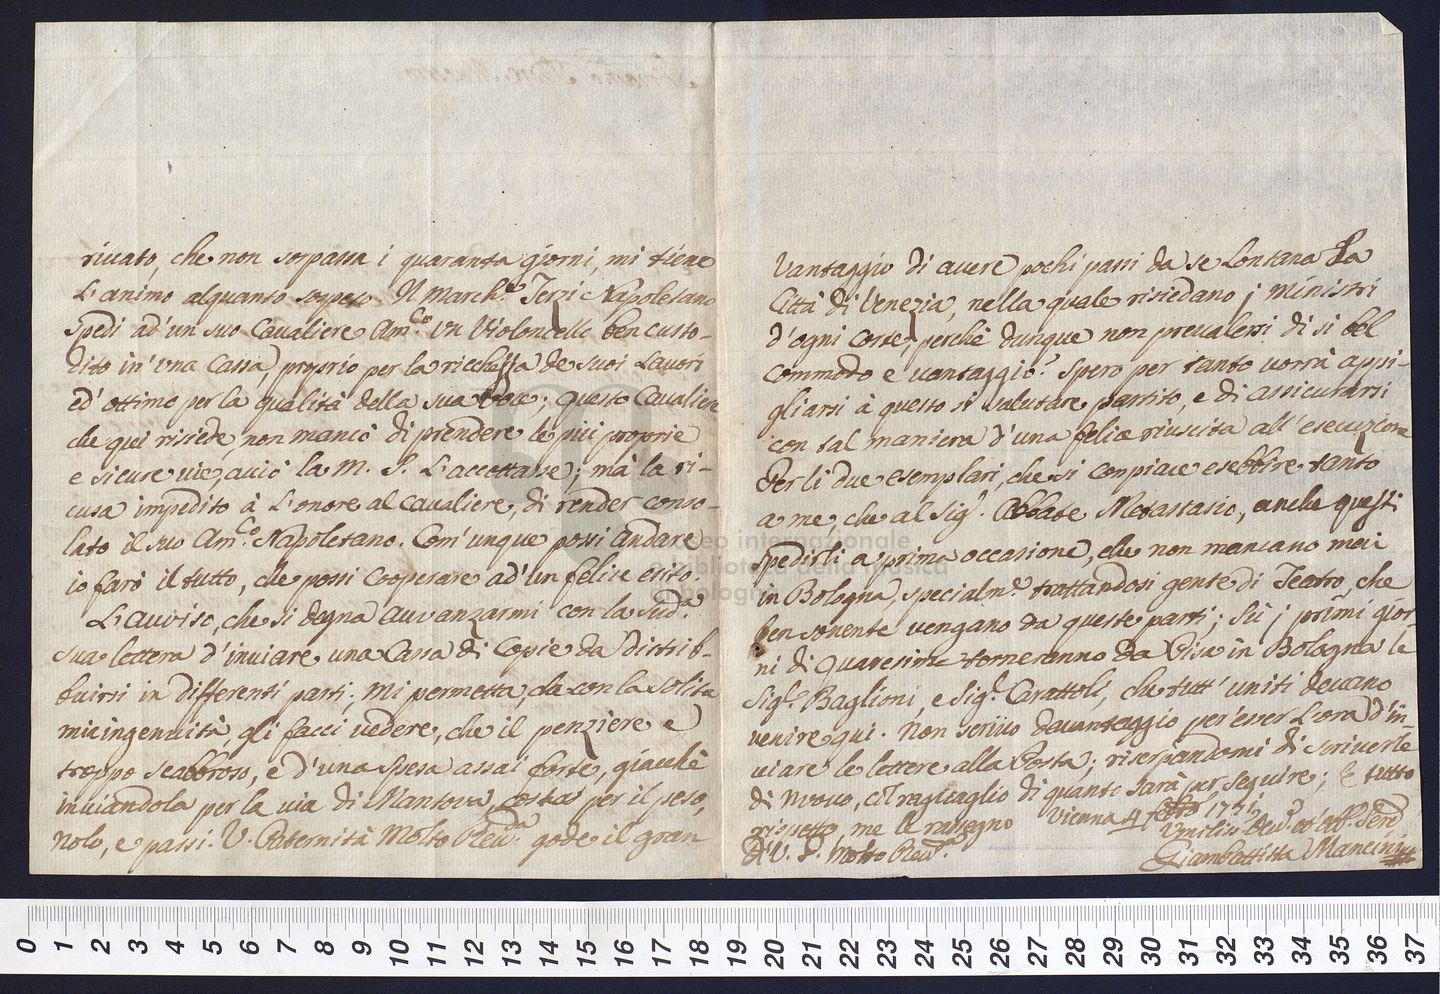 rivato, che non sorpassa i quaranta giorni, mi tiene
L'animo alquanto sospeso. Il March.e Terzi Napoletano
spedì ad'un suo Cavaliere Am.co un Violoncello ben custo-
dito in'una Cassa, proprio per la ricchezza de suoi Lavori
ed'ottimo per la qualità della sua voce; questo Cavaliere
che qui risiede, non mancò di prendere le più proprie
e sicure vie, acciò la M. S. L'accettasse; mà la ri-
cusa impedito à L'onore al Cavaliere, di render conso-
lato il suo Am.co Napoletano. Com'unque possi andare
io farò il tutto, che possi cooperare ad'un felice esito.
L'avviso, che si degna avvanzarmi con la sud.a
sua lettera d'inviare una Cassa di Copie da distri-
buirsi in differenti parti; Mi permetta, che con la solita
mia ingenuità, gli facci vedere, che il penziere e
troppo scabbroso, e d'una spesa assai forte, giacchè
inviandola per la via di Mantova, costa per il peso,
nolo, e passi. V. Paternità Molto Rev.da gode il gran
Vantaggio di avere pochi passi da se Lontana La
Città di Venezia, nella quale risiedano j Ministri
d'ogni Corte, perchè dunque non prevalersi di si bel
commodo e vantaggio? Spero per tanto vorrà appi-
gliarsi à questo si salutare partito, e di assicurarsi
con tal maniera d'una felice riuscita all'esecuzione
Per li due esemplari, che si conpiace esebbire tanto
a me, che al Sig.r Abbate Metastasio, anche questi
spedirli a prima occasione, che non mancano mai
in Bologna, specialm.e trattandosi gente di Teatro, che
ben sovente vengano da queste parti; Sù j primi gior-
ni di Quaresima torneranno da Pisa in Bologna le
Sig.e Baglioni, e Sig.r Carattoli, che tutt'uniti devano
venire qui. Non scrivo davantaggio per'esser L'ora d'in-
viare le lettere alla Posta; riserpandomi di scriverle
di nuovo, col raguaglio di quanto sarà per seguire; E tutto
rispetto, me le rassegno
Di V. P. Molto Rev.da
Vienna 4 febro 1771
Umilis.o Dev.o ed Obb. Serv.
Giambattista Mancini
Museo internazionale
e biblioteca della musica
di bologna
0 1 2 3 4 5 6 7 8 9 10 11 12 13 14 15 16 17 18 19 20 21 22 23 24 25 26 27 28 29 30 31 32 33 34 35 36 37